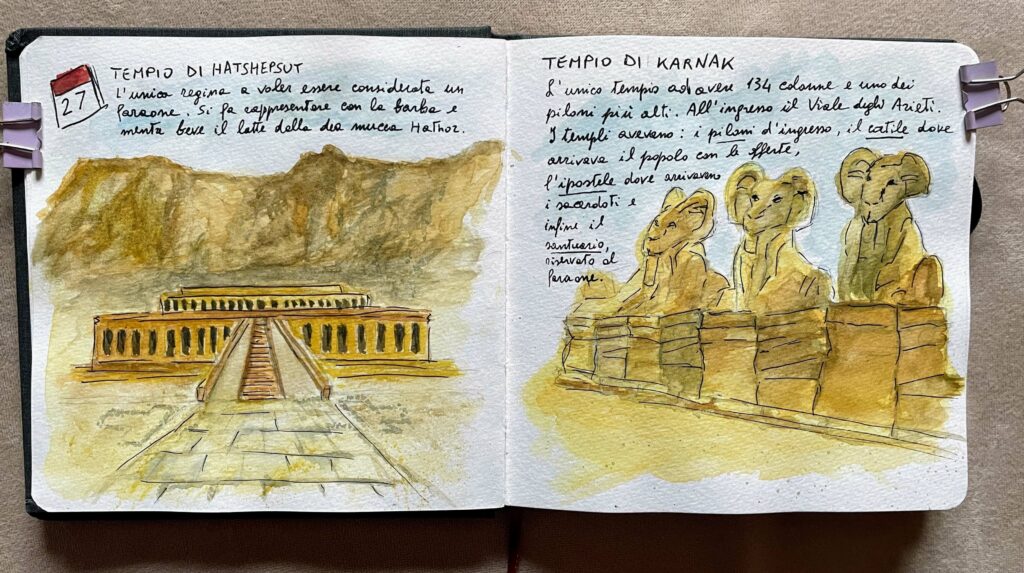 27
TEMPIO DI HATSHEPSUT
L'unica regina a voler essere considerata un
faraone. Si fa rappresentare con la barba e
mentre beve il latte dalla dea mucca Hathor.
TEMPIO DI KARNAK
L'unico tempio ad avere 134 colonne e uno dei
piloni più alti. All'ingresso il Viale degli Arieti.
I templi avevano: i piloni d'ingresso, il cortile dove
arrivava il popolo con le offerte,
l'ipostele dove arrivavano
i sacerdoti e
infine il
santuario,
riservato al
faraone.